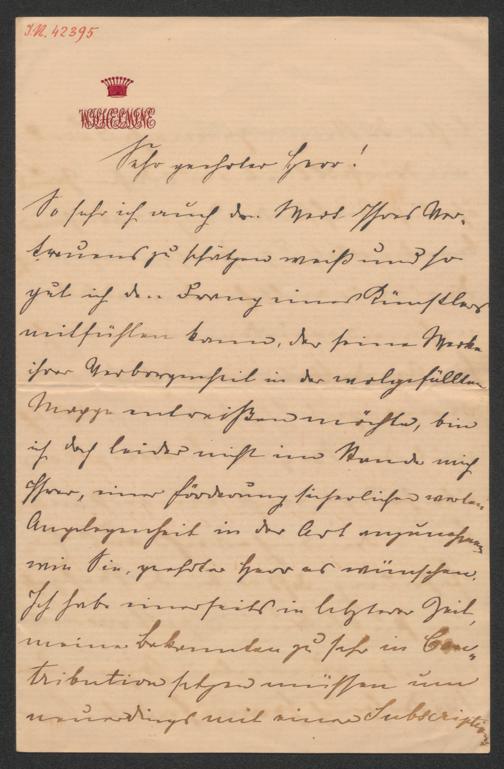 J.N. 42395
WILHELMINE
Sehr geehrter Herr!
So sehr ich auch den Wert Ihres Ver-
trauens zu schätzen weiß und so
gut ich den Drang eines Künstlers
mitfühlen kann, der seine Werke
ihrer Verborgenheit in der wolgefüllten
Mappe entreißen möchte, bin
ich doch leider nicht im Stande mich
Ihrer, einer Förderung sicherlich werten
Angelegenheit in der Art anzunehmen
wie Sie, geehrter Herr es wünschen.
Ich habe einerseits in letzterer Zeit,
meine Bekannten zu sehr in Con-
tribution setzen müssen um
neuerdings mit einer Subscription